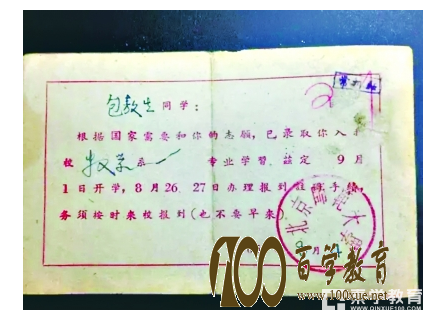 包敖生同学：
根据国家需要和你的志愿，已录取你入本
校 系一 专业学習。兹定 9月
1日开学，8月26、27日办理报到註册手續，
务须按时来校报到（也不要早来）。
北京 大学
月
100百学教育
www.100xue.net
秦学教育
WWW.QINXUE100.COM